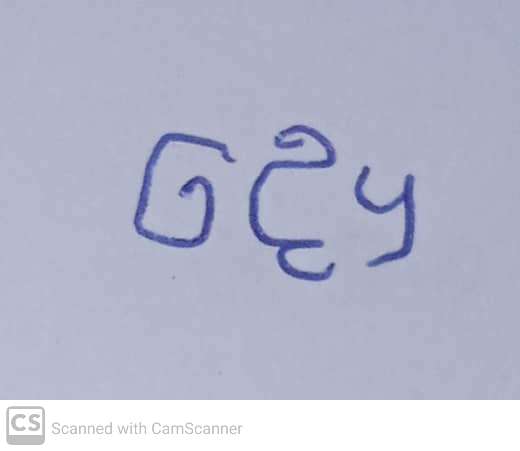 ૭૯૫
Scanned with CamScanner